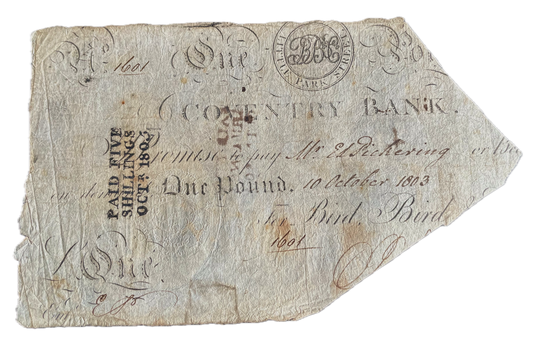 No. 1601 One
LITTLE PARK STREET
COVENTRY BANK.
I Promise to pay Mr. Ed Pickering or
on demand One Pound. 10 October 1803
for Bird, Bird
1601
One
PAID FIVE
SHILLINGS
OCTR. 1805